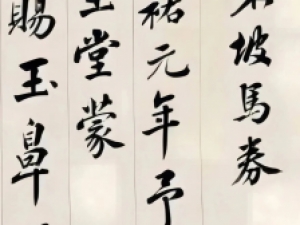 坡馬券
祐元年予
堂蒙
賜玉鼻